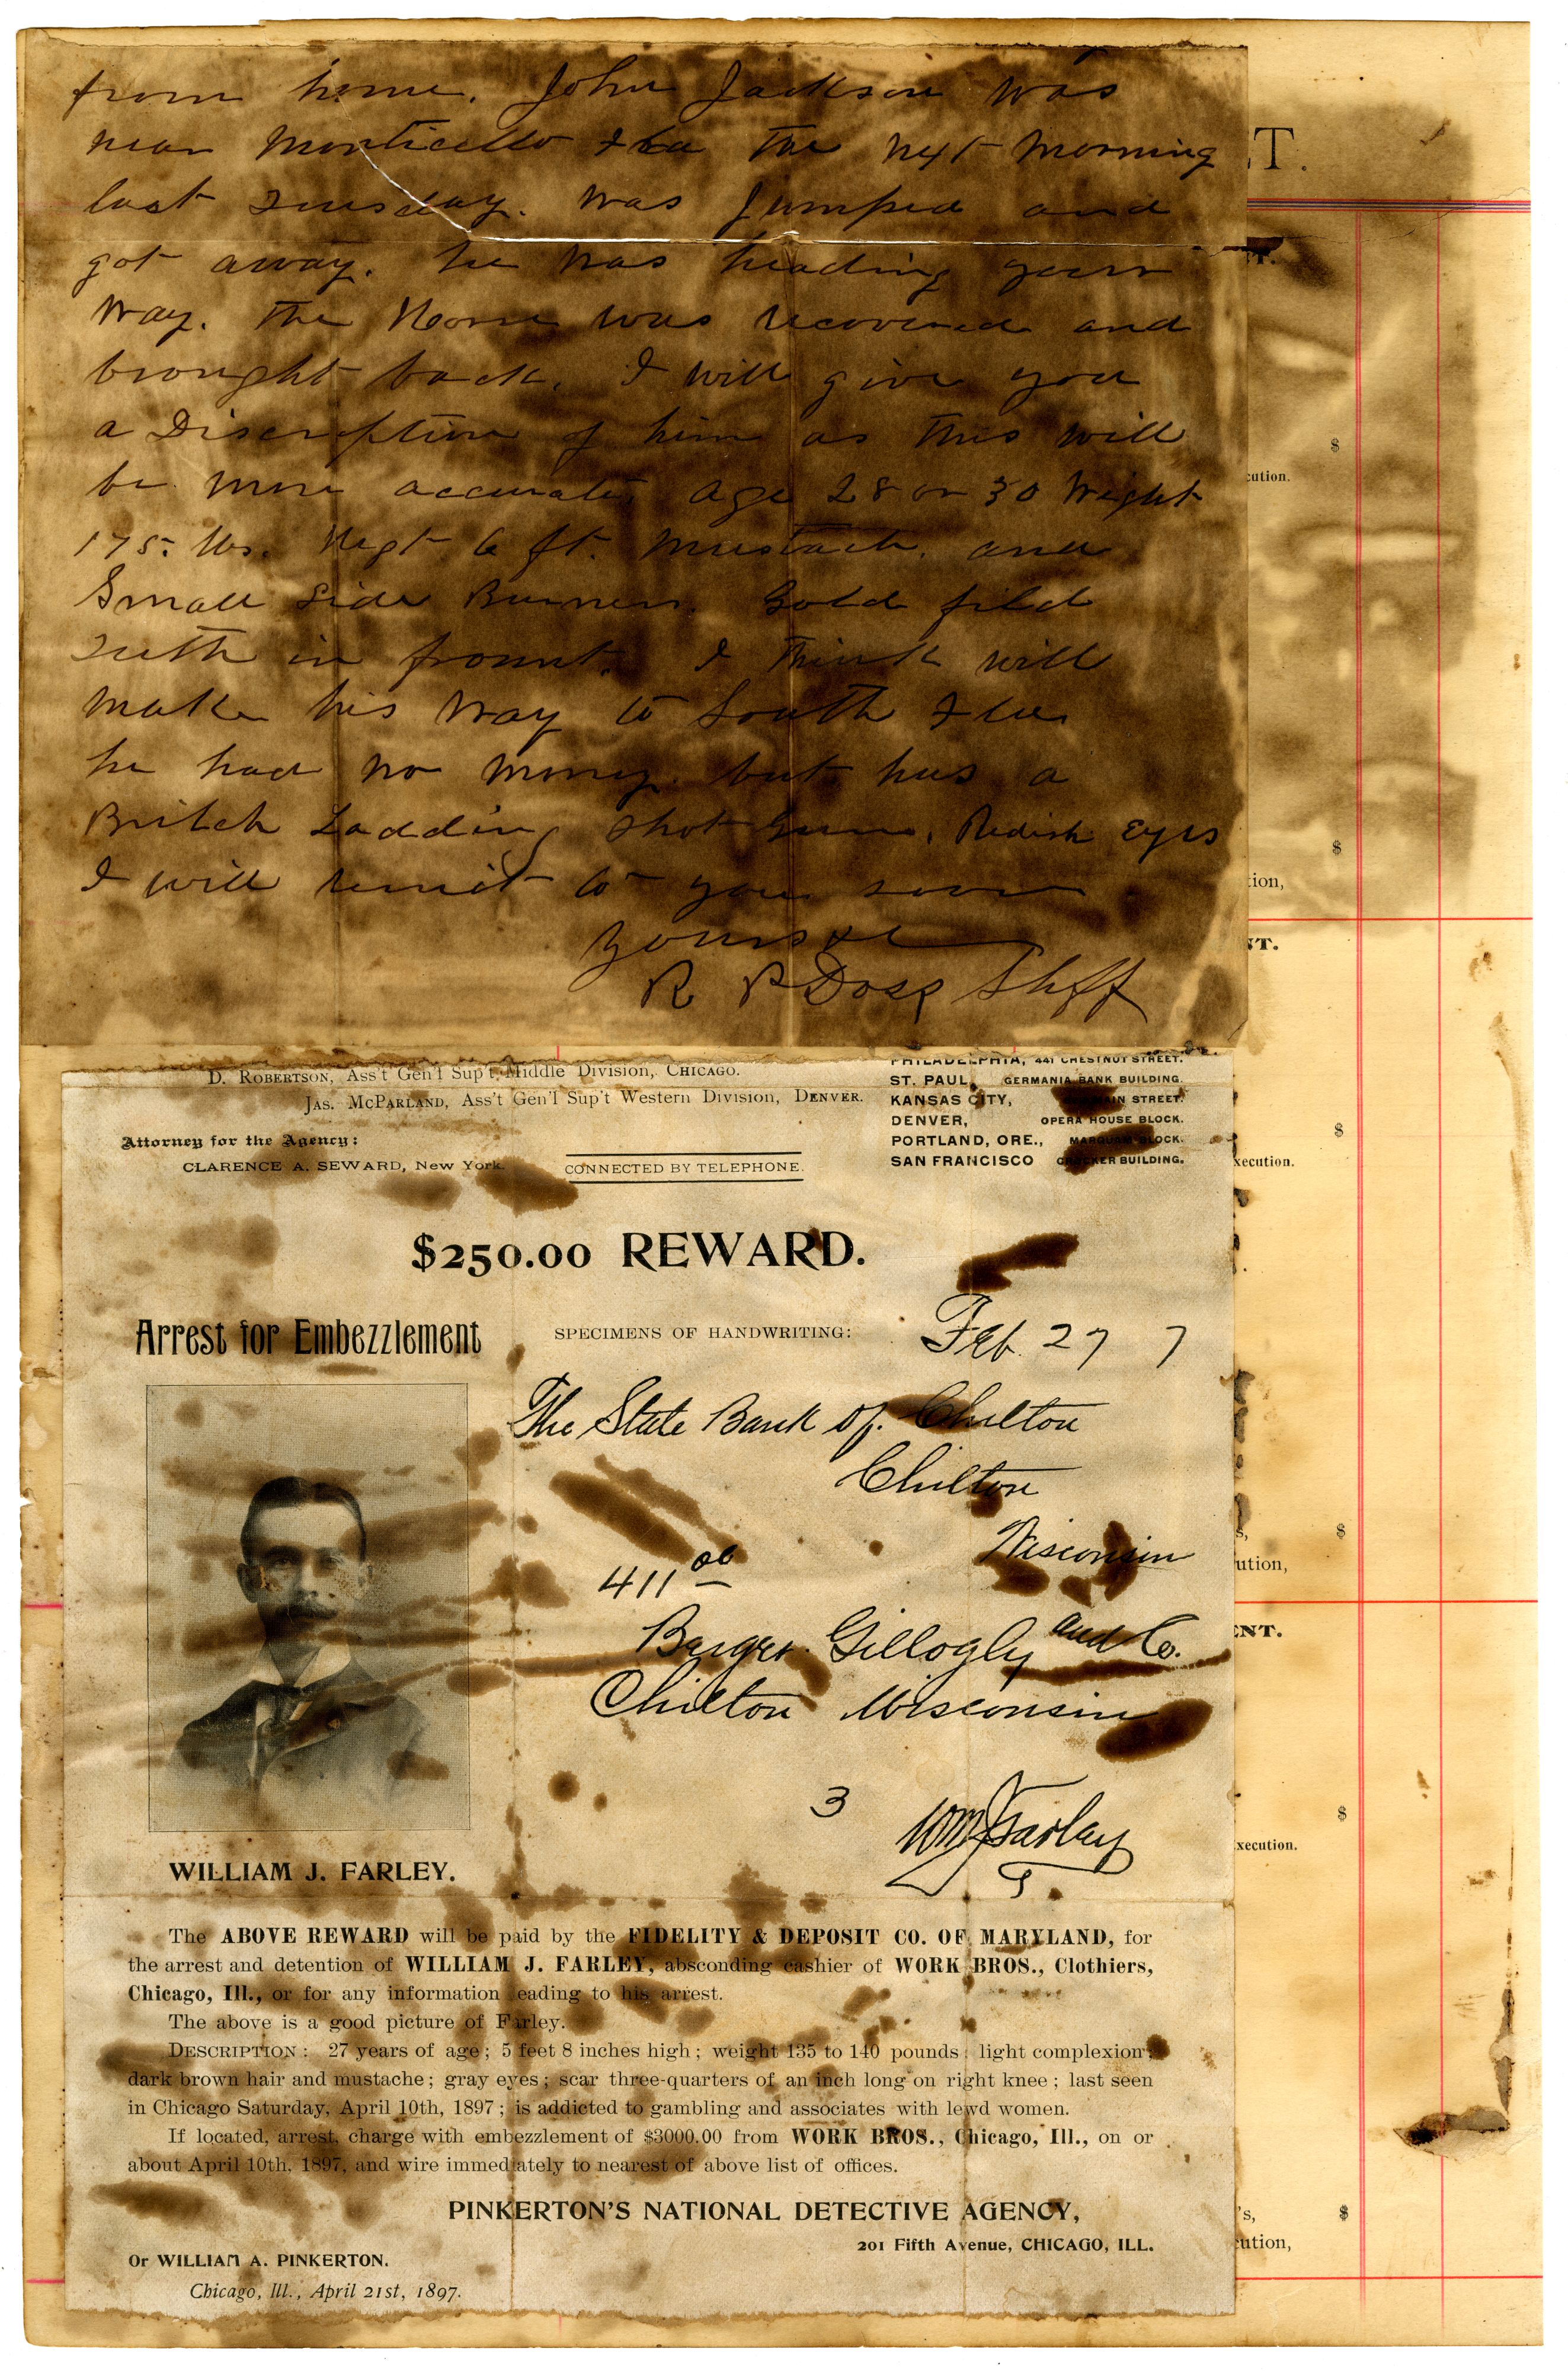 from home. John Jackson was
near Monticello Fla the next morning
last Tuesday. was Jumped and
got away. he was heading your
way. The Horse was recovered and
brought back. I will give you
a Discription of him as this will
be more accurate, age 28 or 30 Wight
175 lbs. Hegt 6 ft. Mustach. and
Small Side Burners. Gold fild
Teeth in frount. I think will
make his way to South Fla
he had no money. but has a
Britch Ladding Shot Gun. Redish Eyes
I will remit to you soon
Yours &c
R P Doss Shff
T.
cution.
$
$
tion,
NT.
$
xecution.
$
s,
ution,
ENT.
$
xecution.
's, $
cution,
D. ROBERTSON, Ass't Gen'l Sup't, Middle Division, CHICAGO.
JAS. MCPARLAND, Ass't Gen'l Sup't Western Division, DENVER.
Attorney for the Agency:
CLARENCE A. SEWARD, New York.
CONNECTED BY TELEPHONE.
PHILADELPHIA, 441 CHESTNUT STREET.
ST. PAUL, GERMANIA BANK BUILDING.
KANSAS CITY, MAIN STREET.
DENVER, OPERA HOUSE BLOCK.
PORTLAND, ORE., MARQUAM BLOCK.
SAN FRANCISCO CROCKER BUILDING.
$250.00 REWARD.
Arrest for Embezzlement
SPECIMENS OF HANDWRITING:
Feb. 27 7
The State Bank of. Chilton
Chilton
Wisconsin
411 00
Barger Gillogly and Co.
Chilton Wisconsin
3
Wm J Farley
WILLIAM J. FARLEY.
The ABOVE REWARD will be paid by the FIDELITY & DEPOSIT CO. OF MARYLAND, for
the arrest and detention of WILLIAM J. FARLEY, absconding cashier of WORK BROS., Clothiers,
Chicago, Ill., or for any information leading to his arrest.
The above is a good picture of Farley.
DESCRIPTION: 27 years of age; 5 feet 8 inches high; weight 135 to 140 pounds; light complexion;
dark brown hair and mustache; gray eyes; scar three-quarters of an inch long on right knee; last seen
in Chicago Saturday, April 10th, 1897; is addicted to gambling and associates with lewd women.
If located, arrest, charge with embezzlement of $3000.00 from WORK BROS., Chicago, Ill., on or
about April 10th, 1897, and wire immediately to nearest of above list of offices.
PINKERTON'S NATIONAL DETECTIVE AGENCY,
201 Fifth Avenue, CHICAGO, ILL.
Or WILLIAM A. PINKERTON.
Chicago, Ill., April 21st, 1897.